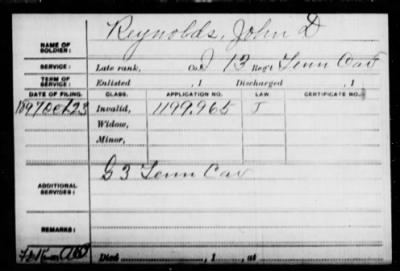 NAME OF SOLDIER: Reynolds, John D
SERVICE: Late rank, Co. J 13 Reg't Tenn Cav
TERM OF SERVICE: Enlisted , 1 Discharged , 1
DATE OF FILING. CLASS. APPLICATION NO. LAW CERTIFICATE NO.
1897 Oct 23 Invalid, 1199.965 J
Widow,
Minor,
ADDITIONAL SERVICES: G 3 Tenn Cav
REMARKS:
Died , 1 , at